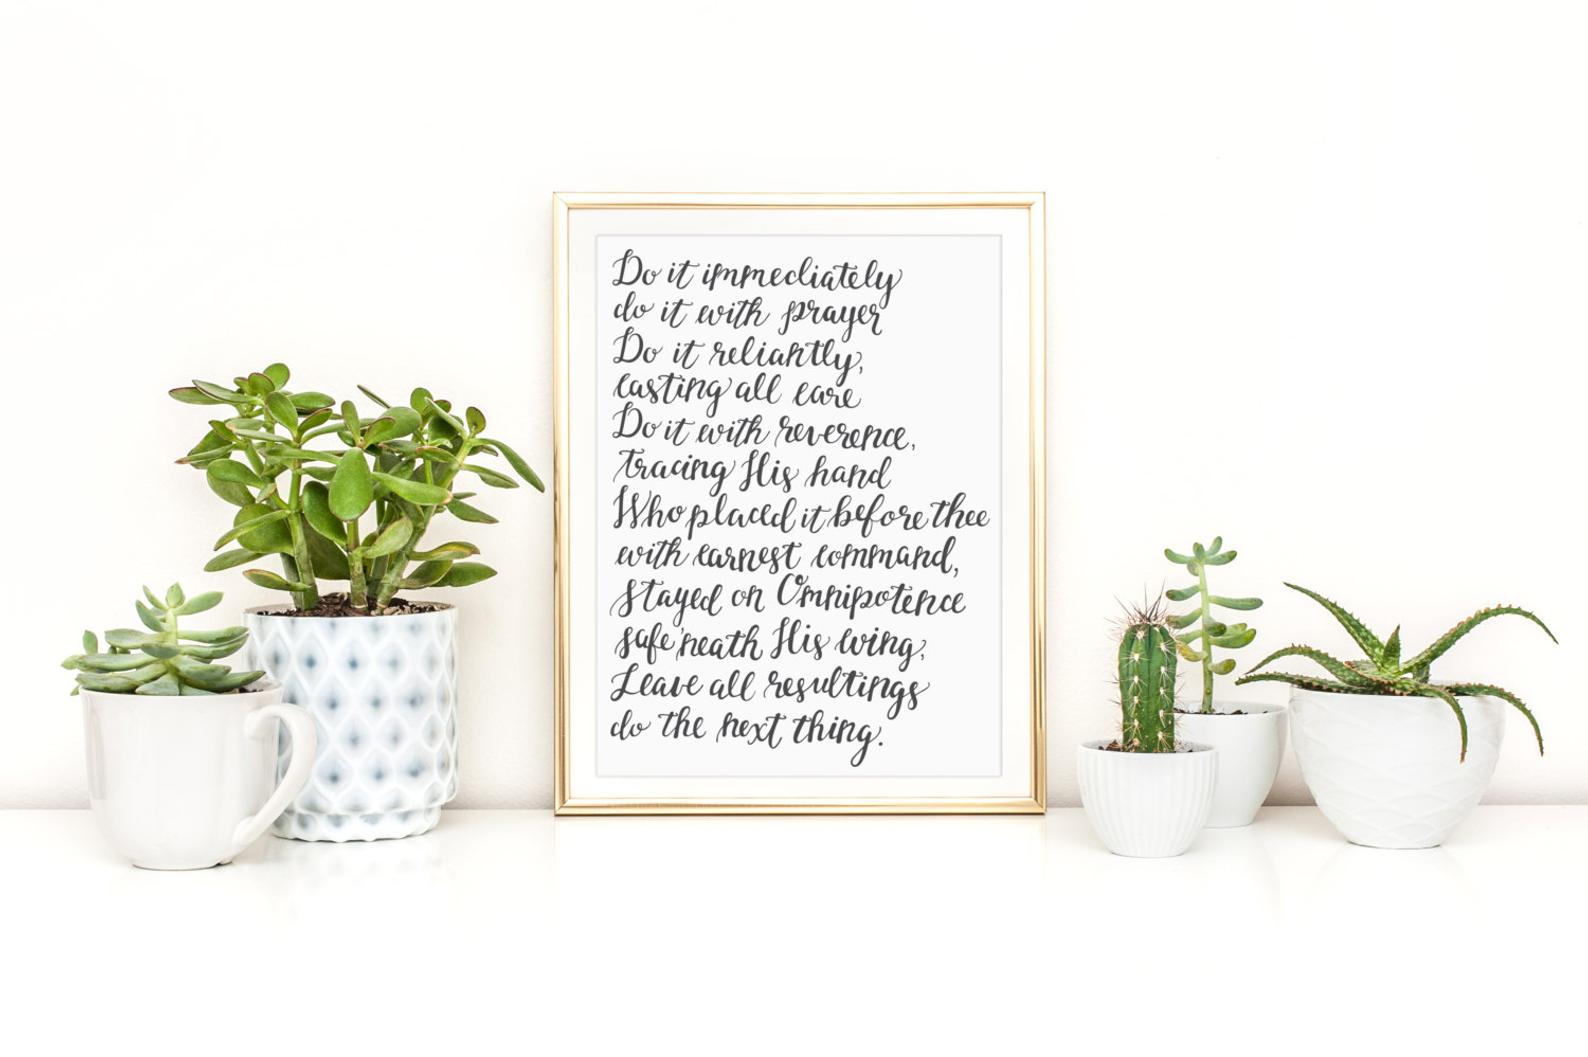 Do it immediately
do it with prayer
Do it reliantly,
casting all care
Do it with reverence,
tracing His hand
Who placed it before thee
with earnest command,
Stayed on Omnipotence
safe 'neath His wing,
Leave all resultings
do the next thing.